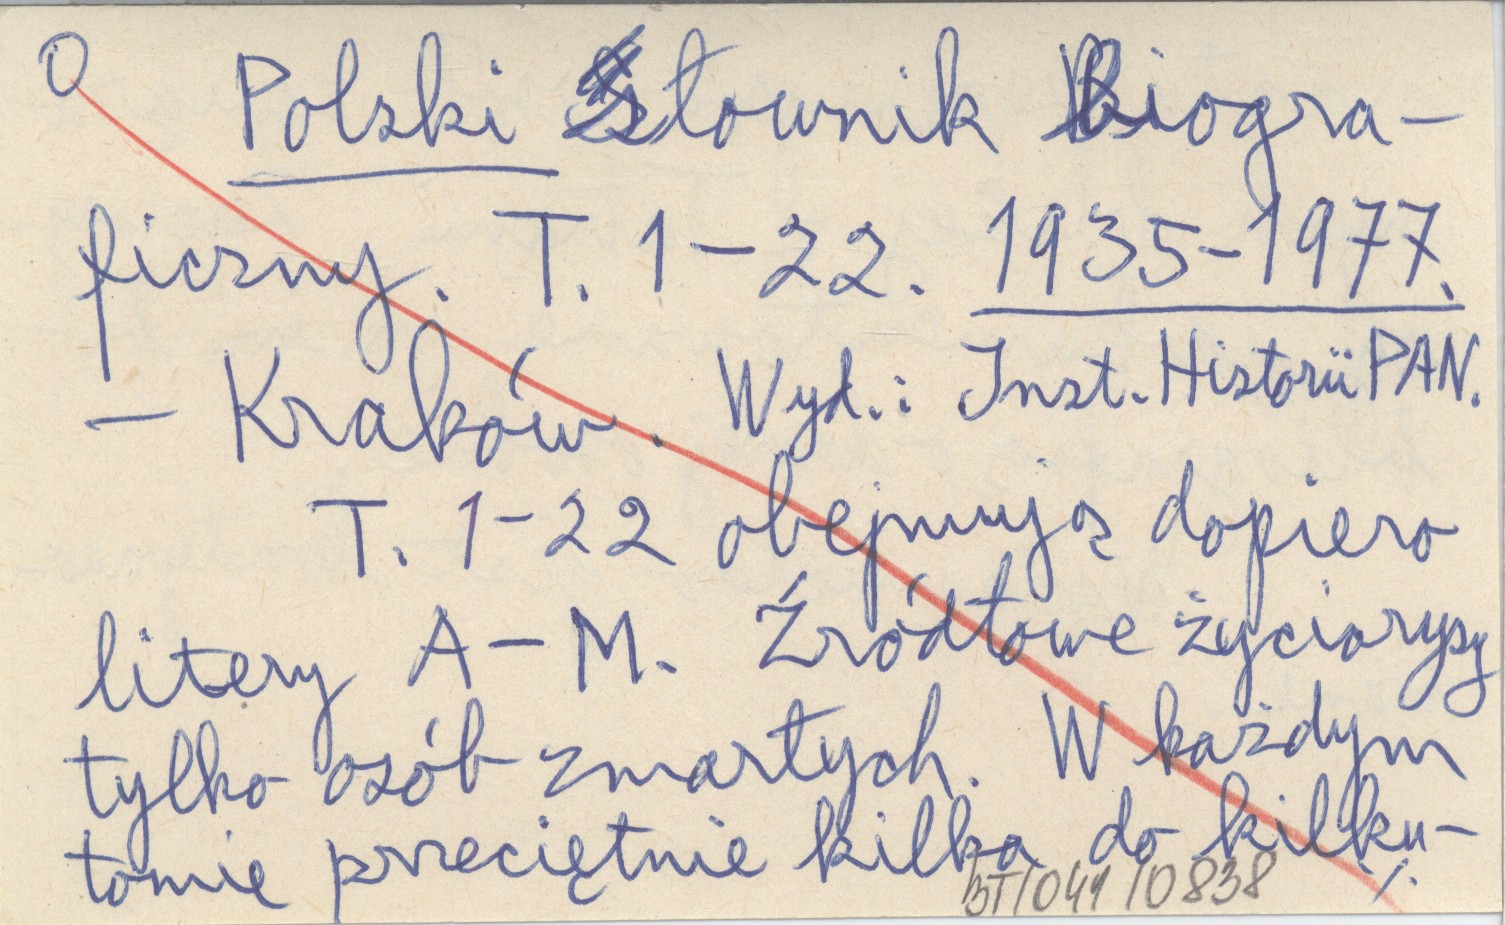 O
Polski Słownik Biogra-
ficzny. T. 1-22. 1935-1977.
- Kraków. Wyd.: Inst. Historii PAN.
T. 1-22 obejmują dopiero
litery A-M. Źródłowe życiorysy
tylko osób zmarłych. W każdym
tomie przeciętnie kilka do kilku-
BT/041/0838 ./.